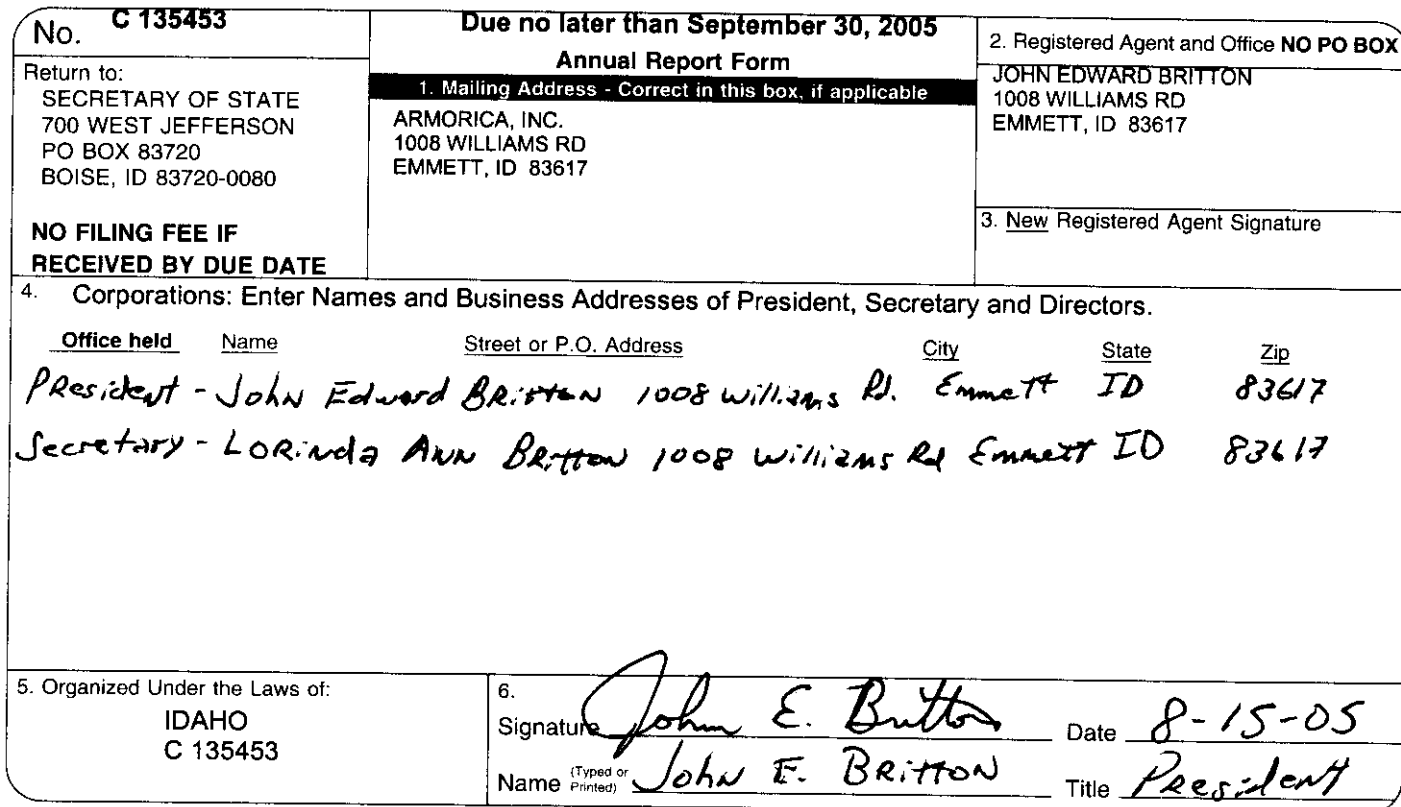 No. C 135453
Return to:
SECRETARY OF STATE
700 WEST JEFFERSON
PO BOX 83720
BOISE, ID 83720-0080
NO FILING FEE IF
RECEIVED BY DUE DATE
Due no later than September 30, 2005
Annual Report Form
1. Mailing Address - Correct in this box, if applicable
ARMORICA, INC.
1008 WILLIAMS RD
EMMETT, ID 83617
2. Registered Agent and Office NO PO BOX
JOHN EDWARD BRITTON
1008 WILLIAMS RD
EMMETT, ID 83617
3. New Registered Agent Signature
4. Corporations: Enter Names and Business Addresses of President, Secretary and Directors.
Office held Name Street or P.O. Address City State Zip
President - John Edward Britton 1008 Williams Rd. Emmett ID 83617
Secretary - Lorinda Ann Britton 1008 Williams Rd Emmett ID 83617
5. Organized Under the Laws of:
IDAHO
C 135453
6.
Signature John E. Britton Date 8-15-05
Name (Typed or Printed) John E. Britton Title President